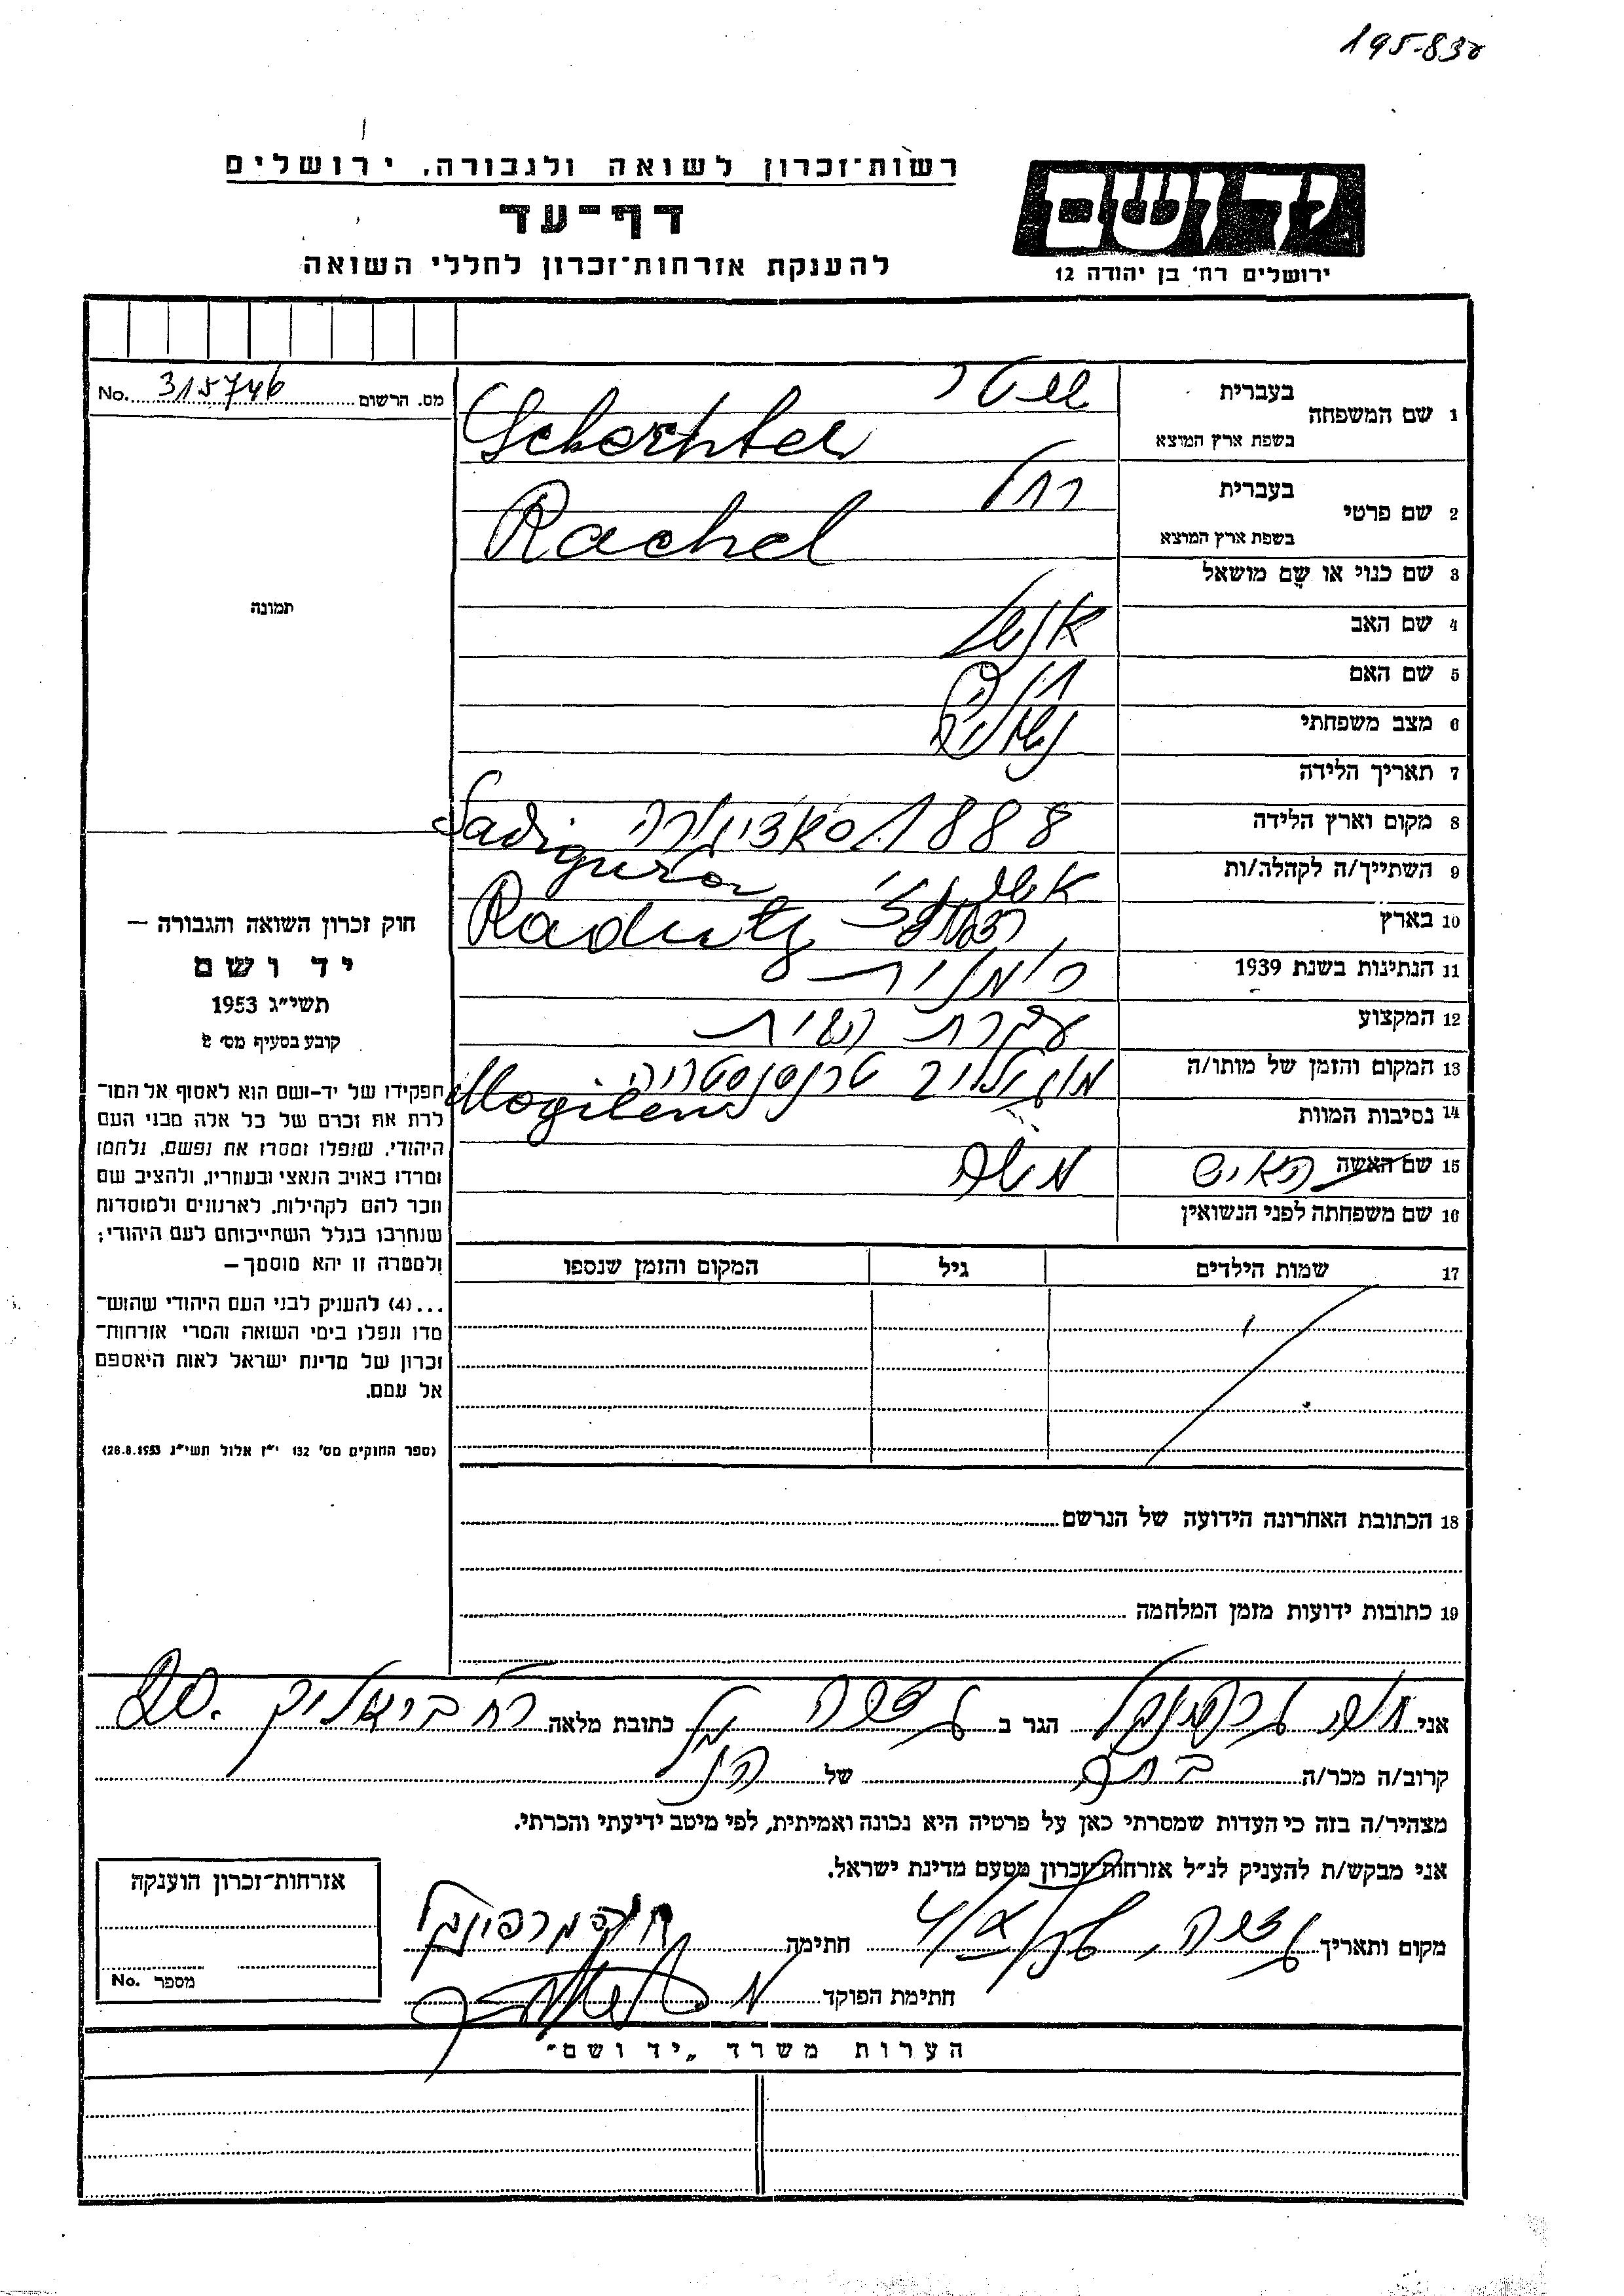 195-838
רשות־זכרון לשואה ולגבורה, ירושלים
דף־עד
להענקת אזרחות־זכרון לחללי השואה
יד ושם
ירושלים רח' בן יהודה 12
מס. הרשום 315746 No.
1 שם המשפחה
בעברית שכטר
בשפת ארץ המוצא Schechter
2 שם פרטי
בעברית רחל
בשפת ארץ המוצא Rachel
3 שם כנוי או שם מושאל
4 שם האב אנשל
5 שם האם
6 מצב משפחתי נשואה
7 תאריך הלידה 1888
8 מקום וארץ הלידה סאדיגורה Sadigura
9 השתייך/ה לקהלה/ות Radutz
10 בארץ
11 הנתינות בשנת 1939 רומנית
12 המקצוע עקרת בית
13 המקום והזמן של מותו/ה מוגילוב טרנסנסטריה Mogilew
14 נסיבות המוות
15 שם האשה האיש משה
16 שם משפחתה לפני הנשואין
17 שמות הילדים גיל המקום והזמן שנספו
תמונה
חוק זכרון השואה והגבורה —
יד ושם
תשי"ג 1953
קובע בסעיף מס' 2
תפקידו של יד-ושם הוא לאסוף אל המו־
לדת את זכרם של כל אלה מבני העם
היהודי, שנפלו ומסרו את נפשם, נלחמו
ומרדו באויב הנאצי ובעוזריו, ולהציב שם
וזכר להם לקהילות, לארגונים ולמוסדות
שנחרבו בגלל השתייכותם לעם היהודי;
ולמטרה זו יהא מוסמך —
...(4) להעניק לבני העם היהודי שהוש־
מדו ונפלו בימי השואה והמרי אזרחות־
זכרון של מדינת ישראל לאות היאספם
אל עמם.
(ספר החוקים מס' 132 י"ז אלול תשי"ג 28.8.1953)
18 הכתובת האחרונה הידועה של הנרשם
19 כתובות ידועות מזמן המלחמה
אני הגר ב כתובת מלאה רח ביאליק 20.
קרוב/ה מכר/ה בתה של הנ"ל
מצהיר/ה בזה כי העדות שמסרתי כאן על פרטיה היא נכונה ואמיתית, לפי מיטב ידיעתי והכרתי.
אני מבקש/ת להעניק לנ"ל אזרחות־זכרון מטעם מדינת ישראל.
מקום ותאריך חתימה
חתימת הפוקד
אזרחות־זכרון הוענקה
מספר No.
הערות משרד „יד ושם"